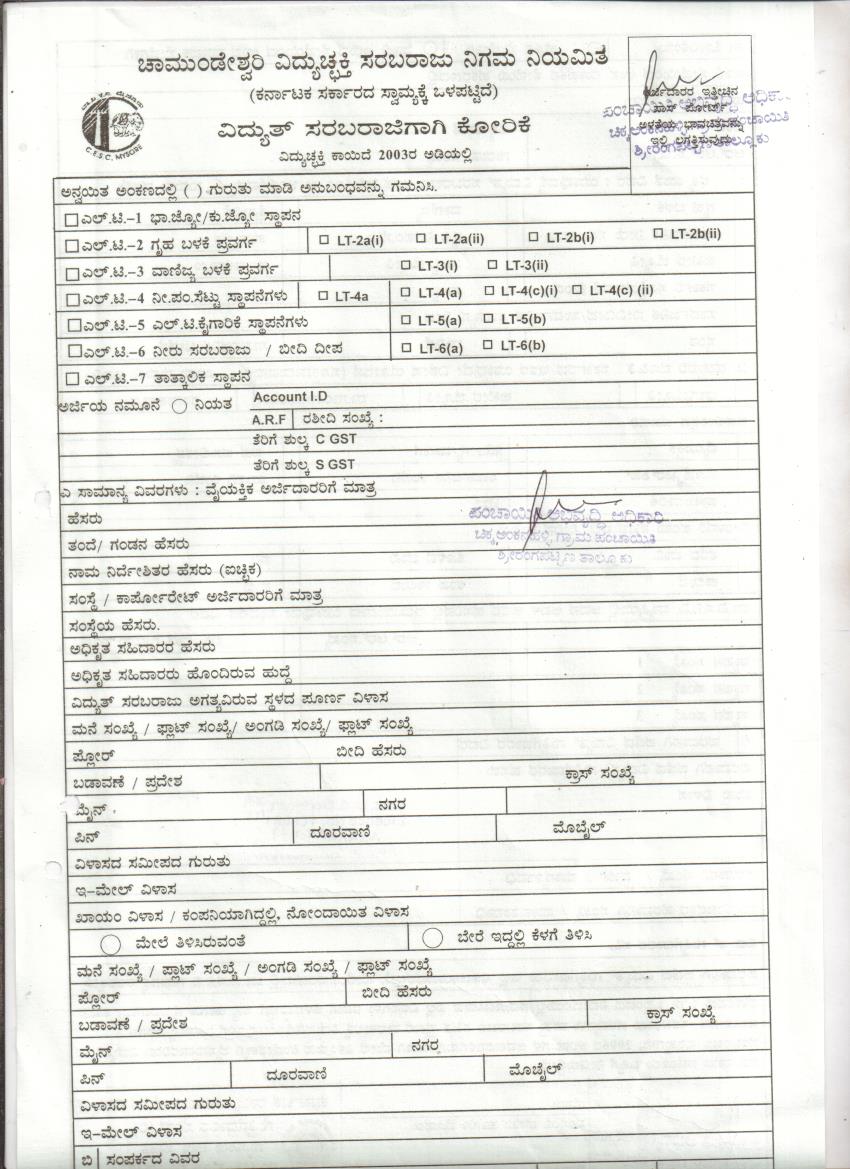 ಚಾಮುಂಡೇಶ್ವರಿ ವಿದ್ಯುಚ್ಛಕ್ತಿ ಸರಬರಾಜು ನಿಗಮ ನಿಯಮಿತ
(ಕರ್ನಾಟಕ ಸರ್ಕಾರದ ಸ್ವಾಮ್ಯಕ್ಕೆ ಒಳಪಟ್ಟಿದೆ)
ವಿದ್ಯುತ್ ಸರಬರಾಜಿಗಾಗಿ ಕೋರಿಕೆ
ವಿದ್ಯುಚ್ಛಕ್ತಿ ಕಾಯಿದೆ 2003ರ ಅಡಿಯಲ್ಲಿ
C.E.S.C, MYSORE
ಅರ್ಜಿದಾರರ ಇತ್ತೀಚಿನ
ಪಾಸ್ ಪೋರ್ಟ್
ಅಳತೆಯ ಭಾವಚಿತ್ರವನ್ನು
ಇಲ್ಲಿ ಲಗತ್ತಿಸುವುದು
ಅನ್ವಯಿತ ಅಂಕಣದಲ್ಲಿ ( ) ಗುರುತು ಮಾಡಿ ಅನುಬಂಧವನ್ನು ಗಮನಿಸಿ.
ಎಲ್.ಟಿ.-1 ಭಾ.ಜ್ಯೋ/ಕು.ಜ್ಯೋ ಸ್ಥಾಪನ
ಎಲ್.ಟಿ.-2 ಗೃಹ ಬಳಕೆ ಪ್ರವರ್ಗ LT-2a(i) LT-2a(ii) LT-2b(i) LT-2b(ii)
ಎಲ್.ಟಿ.-3 ವಾಣಿಜ್ಯ ಬಳಕೆ ಪ್ರವರ್ಗ LT-3(i) LT-3(ii)
ಎಲ್.ಟಿ.-4 ನೀ.ಪಂ.ಸೆಟ್ಟು ಸ್ಥಾಪನೆಗಳು LT-4a LT-4(a) LT-4(c)(i) LT-4(c) (ii)
ಎಲ್.ಟಿ.-5 ಎಲ್.ಟಿ.ಕೈಗಾರಿಕೆ ಸ್ಥಾಪನೆಗಳು LT-5(a) LT-5(b)
ಎಲ್.ಟಿ.-6 ನೀರು ಸರಬರಾಜು / ಬೀದಿ ದೀಪ LT-6(a) LT-6(b)
ಎಲ್.ಟಿ.-7 ತಾತ್ಕಾಲಿಕ ಸ್ಥಾಪನ
ಅರ್ಜಿಯ ನಮೂನೆ ನಿಯತ Account I.D
A.R.F ರಶೀದಿ ಸಂಖ್ಯೆ :
ತೆರಿಗೆ ಶುಲ್ಕ C GST
ತೆರಿಗೆ ಶುಲ್ಕ S GST
ಎ ಸಾಮಾನ್ಯ ವಿವರಗಳು : ವೈಯಕ್ತಿಕ ಅರ್ಜಿದಾರರಿಗೆ ಮಾತ್ರ
ಹೆಸರು
ಪಂಚಾಯಿತಿ ಅಭಿವೃದ್ಧಿ ಅಧಿಕಾರಿ
ಚಿಕ್ಕಅಂಕನಹಳ್ಳಿ ಗ್ರಾಮ ಪಂಚಾಯಿತಿ
ಶ್ರೀರಂಗಪಟ್ಟಣ ತಾಲ್ಲೂಕು
ತಂದೆ/ ಗಂಡನ ಹೆಸರು
ನಾಮ ನಿರ್ದೇಶಿತರ ಹೆಸರು (ಐಚ್ಛಿಕ)
ಸಂಸ್ಥೆ / ಕಾರ್ಪೋರೇಟ್ ಅರ್ಜಿದಾರರಿಗೆ ಮಾತ್ರ
ಸಂಸ್ಥೆಯ ಹೆಸರು.
ಅಧಿಕೃತ ಸಹಿದಾರರ ಹೆಸರು
ಅಧಿಕೃತ ಸಹಿದಾರರು ಹೊಂದಿರುವ ಹುದ್ದೆ
ವಿದ್ಯುತ್ ಸರಬರಾಜು ಅಗತ್ಯವಿರುವ ಸ್ಥಳದ ಪೂರ್ಣ ವಿಳಾಸ
ಮನೆ ಸಂಖ್ಯೆ / ಫ್ಲಾಟ್ ಸಂಖ್ಯೆ/ ಅಂಗಡಿ ಸಂಖ್ಯೆ/ ಫ್ಲಾಟ್ ಸಂಖ್ಯೆ
ಫ್ಲೋರ್ ಬೀದಿ ಹೆಸರು
ಬಡಾವಣೆ / ಪ್ರದೇಶ ಕ್ರಾಸ್ ಸಂಖ್ಯೆ
ಮೈನ್ ನಗರ
ಪಿನ್ ದೂರವಾಣಿ ಮೊಬೈಲ್
ವಿಳಾಸದ ಸಮೀಪದ ಗುರುತು
ಇ-ಮೇಲ್ ವಿಳಾಸ
ಖಾಯಂ ವಿಳಾಸ / ಕಂಪನಿಯಾಗಿದ್ದಲ್ಲಿ, ನೋಂದಾಯಿತ ವಿಳಾಸ
ಮೇಲೆ ತಿಳಿಸಿರುವಂತೆ ಬೇರೆ ಇದ್ದಲ್ಲಿ ಕೆಳಗೆ ತಿಳಿಸಿ
ಮನೆ ಸಂಖ್ಯೆ / ಪ್ಲಾಟ್ ಸಂಖ್ಯೆ / ಅಂಗಡಿ ಸಂಖ್ಯೆ / ಫ್ಲಾಟ್ ಸಂಖ್ಯೆ
ಫ್ಲೋರ್ ಬೀದಿ ಹೆಸರು
ಬಡಾವಣೆ / ಪ್ರದೇಶ ಕ್ರಾಸ್ ಸಂಖ್ಯೆ
ಮೈನ್ ನಗರ
ಪಿನ್ ದೂರವಾಣಿ ಮೊಬೈಲ್
ವಿಳಾಸದ ಸಮೀಪದ ಗುರುತು
ಇ-ಮೇಲ್ ವಿಳಾಸ
ಬಿ ಸಂಪರ್ಕದ ವಿವರ